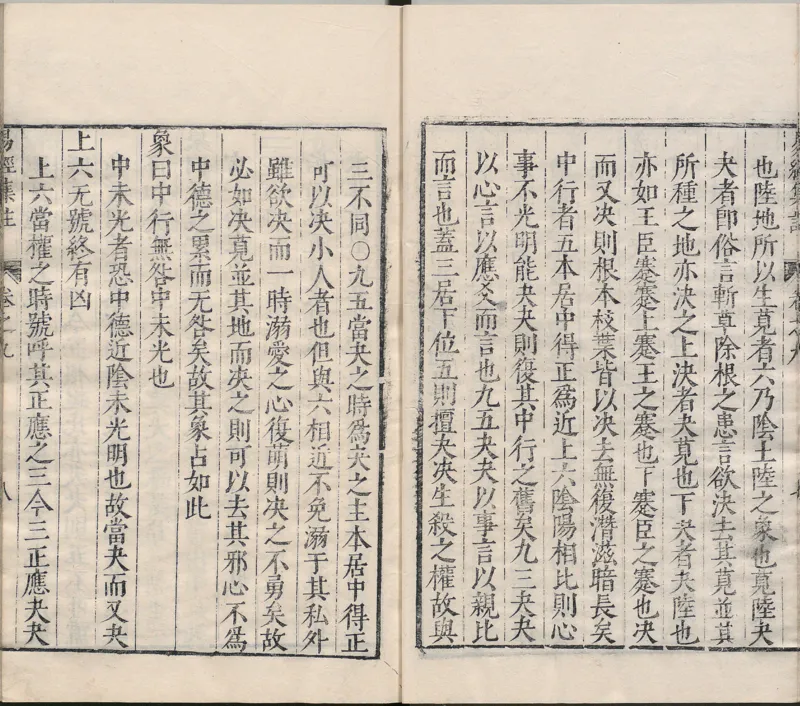 也陸地所以生莧者六乃陰土陸之象也莧陸夬
夬者卽俗言斬草除根之恚言欲決去其莧並其
所種之地亦決之上決者夬莧也下夬者夬陸也
亦如王臣蹇蹇上蹇王之蹇也下蹇臣之蹇也决
而又决則根本枝葉皆以决去無復潛滋暗長矣
中行者五本居中得正爲近上六陰陽相比則心
事不光明能夬夬則復其中行之舊矣九三夬夬
以心言以應爻而言也九五夬夬以事言以親比
而言也蓋三居下位五則擅夬决生殺之權故與
三不同〇九五當夬之時爲夬之主本居中得正
可以决小人者也但與六相近不免溺于其私外
雖欲决而一時溺愛之心復萌則决之不勇矣故
必如决莧並其地而决之則可以去其邪心不爲
中德之累而无咎矣故其象占如此
象曰中行無咎中未光也
中未光者恐中德近陰未光明也故當夬而又夬
上六无號終有凶
上六當權之時號呼其正應之三今三正應夬夬
易經集註
卷之九
八